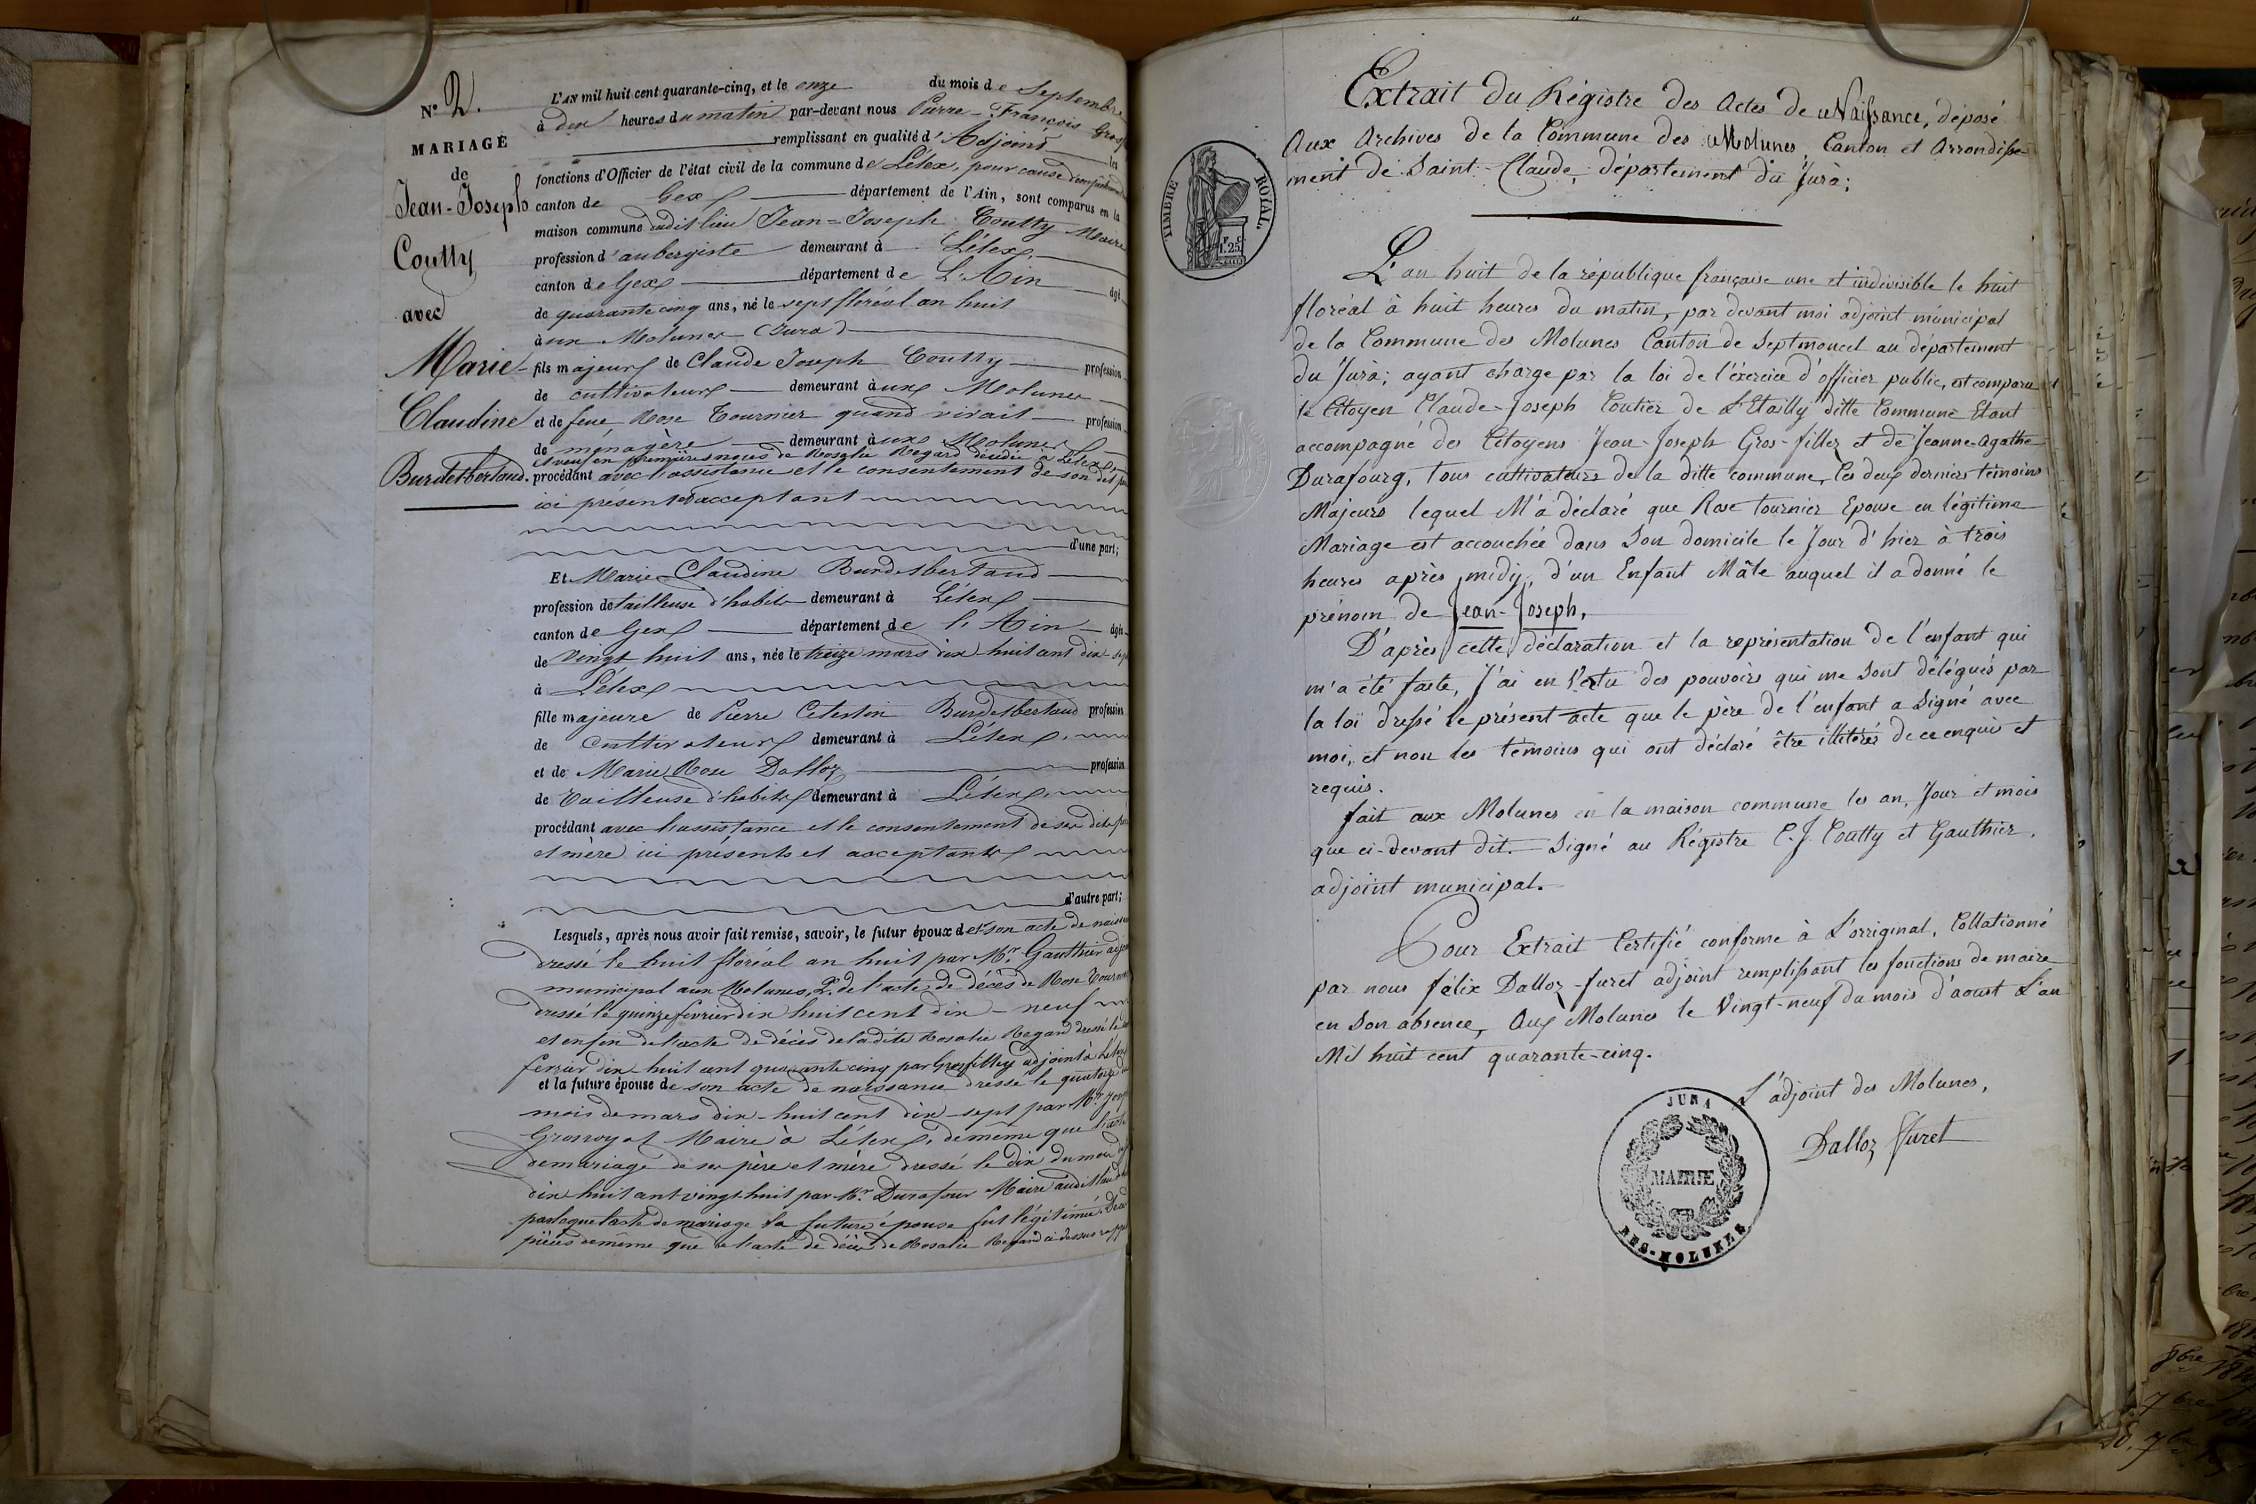 N° 2.
MARIAGE
de
Jean-Joseph
Coutty
avec
Marie-
Claudine
Burdetbertaud.
L'AN mil huit cent quarante-cinq, et le onze du mois de Septembre
à dix heures du matin par-devant nous Pierre-François Gros
remplissant en qualité d'Adjoint les
fonctions d'Officier de l'état civil de la commune de Lélex, pour cause
canton de Gex département de l'Ain, sont comparus en la
maison commune dudit lieu Jean-Joseph Coutty Maire
profession d'aubergiste demeurant à Lélex,
canton de Gex département de L'Ain âgé
de quarante cinq ans, né le sept floréal an huit
aux Molunes (Jura)
fils majeur de Claude Joseph Coutty profession
de cultivateur demeurant à aux Molunes
et de feue Rose Tournier quand vivait profession
de ménagère demeurant à aux Molunes
et veuf en premières noces de Rosalie Regard décédée à Lélex
procédant avec l'assistance et le consentement de son dit père
ici présent et acceptant
d'une part;
Et Marie Claudine Burdetbertaud
profession de tailleuse d'habits demeurant à Lélex
canton de Gex département de l'Ain âgée
de vingt huit ans, née le treize mars dix huit cent dix-sept
à Lélex
fille majeure de Pierre Célestin Burdetbertaud profession
de cultivateur demeurant à Lélex.
et de Marie Rose Dalloz profession
de tailleuse d'habits demeurant à Lélex.
procédant avec l'assistance et le consentement de ses dits père
et mère ici présents et acceptants
d'autre part;
Lesquels, après nous avoir fait remise, savoir, le futur époux de 1° son acte de naissance
dressé le huit floréal an huit par Mr. Gauthier adjoint
municipal aux Molunes, 2° de l'acte de décès de Rose Tournier
dressé le quinze février dix huit cent dix-neuf
et enfin de l'acte de décès de ladite Rosalie Regard dressé le
février dix huit cent quarante cinq par Grosfilley adjoint à Lélex
et la future épouse de son acte de naissance dressé le quatorze du
mois de mars dix-huit cent dix-sept par Mr.
Grosroyat Maire à Lélex, de même que l'acte
de mariage de ses père et mère dressé le dix du mois
dix huit cent vingt huit par Mr. Durafour Maire audit lieu
par lequel acte de mariage la future épouse fut légitimée.
pièces de même que de l'acte de décès de Rosalie Regard ci-dessus
TIMBRE ROYAL
1.25
Extrait du Régistre des Actes de Naissance, déposé
Aux Archives de la Commune des Molunes, Canton et Arrondisse-
ment de Saint-Claude, département du Jura;
L'an huit de la république française une et indivisible le huit
floréal à huit heures du matin, par devant moi adjoint municipal
de la Commune des Molunes Canton de Septmoncel au département
du Jura; ayant charge par la loi de l'éxercice d'officier public, est comparu
le Citoyen Claude-Joseph Coutier de L'Etailly ditte Commune Etant
accompagné des Citoyens Jean-Joseph Gros-fillez et de Jeanne-Agathe
Durafourg, tous cultivateurs de la ditte commune, les deux derniers témoins
Majeurs lequel M'a déclaré que Rose Tournier Epouse en légitime
Mariage est accouchée dans Son domicile le Jour d'hier à trois
heures après midy, d'un Enfant Mâle auquel il a donné le
prénom de Jean-Joseph.
D'après cette déclaration et la représentation de l'enfant qui
m'a été faite, J'ai en Vertu des pouvoirs qui me Sont délégués par
la loi dressé le présent acte que le père de l'enfant a Signé avec
moi, et non les témoins qui ont déclaré être illitérés de ce enquis et
requis.
fait aux Molunes en la maison commune les an, Jour et mois
que ci-devant dit. Signé au Régistre C. J. Coutty et Gauthier,
adjoint municipal.
Pour Extrait Certifié conforme à L'original, Collationné
par nous félix Dalloz-furet adjoint remplissant les fonctions de maire
en Son absence, Aux Molunes le Vingt-neuf du mois d'aoust L'an
Mil huit cent quarante-cinq.
L'adjoint des Molunes,
Dalloz Furet
JURA
MAIRIE
DES-MOLUNES